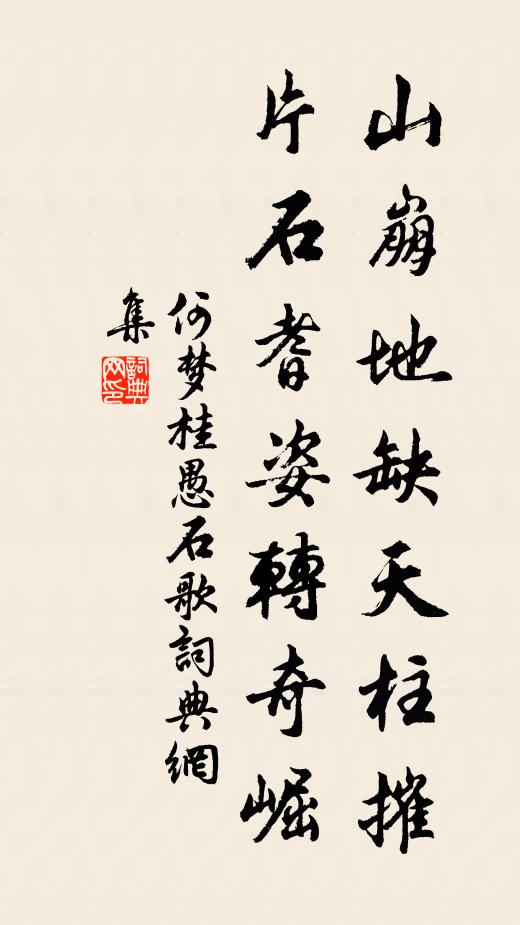 山崩地缺天柱摧
片石耆姿轉奇崛
何梦桂愚石歌詞典網
集
詞典
网印